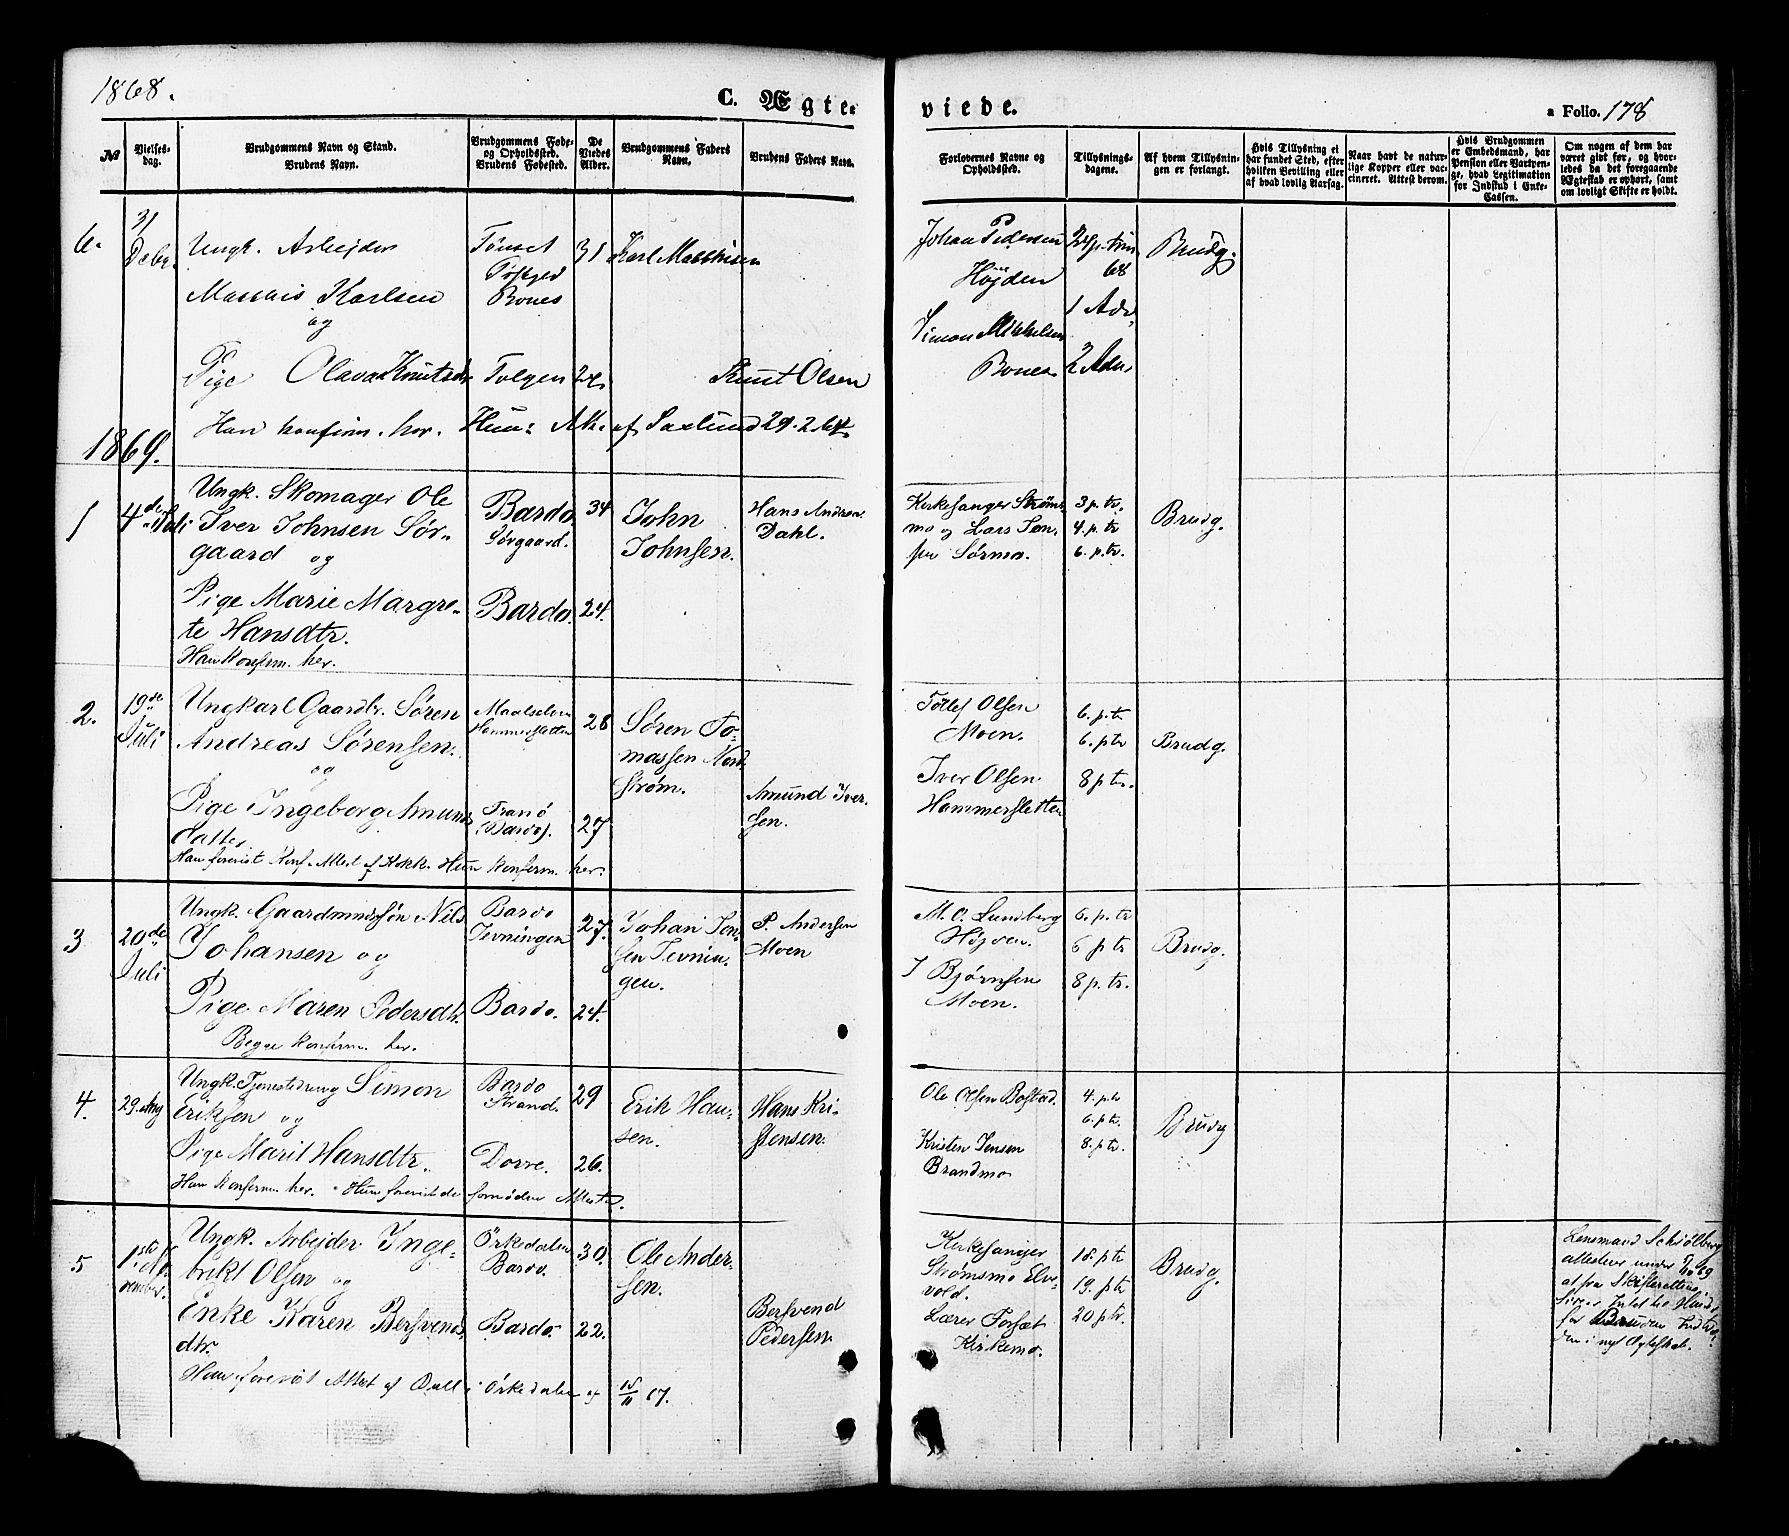 1868.
C. Ægte-
viede.
a Folio. 178
№
Vielses-
dag.
Brudgommens Navn og Stand.
Brudens Navn.
Brudgommens Føde-
og Opholdssted.
Brudens Fødested.
De
Viedes
Alder.
Brudgommens Faders
Navn.
Brudens Faders Navn.
Forlovernes Navne og
Opholdssted.
Tillysnings-
dagene.
Af hvem Tillysnin-
gen er forlangt.
Hvis Tillysning ei
har fundet Sted, efter
hvilken Bevilling eller
af hvad lovlig Aarsag.
Naar havt de natur-
lige Kopper eller vac-
cineret. Attest derom.
Hvis Brudgommen
er Embedsmand, har
Pension eller Vartpen-
ge, hvad Legitimation
for Indskud i Enke-
Cassen.
Om nogen af dem har
været gift før, og hvor-
ledes da det foregaaende
Ægteskab er ophørt, samt
om lovligt Skifte er holdt.
6.
31
Debr.
Ungk. Arbejder
Mathias Karlsen
og
Pige Olava Knutsdr
Tønset
Bones
Tolgen
31
24
Karl Mathisen
Knut Olsen
Johan Pedersen
Højden
Simon Mikkelsen
Bones
68
1 Adv.
2 Adv.
Brudg.
Han konfirm. her. Hun: Att. af Saxlund 29.2.64
1869.
1
4de
Juli
Ungk. Skomager Ole
Iver Johnsen Sør-
gaard og
Pige Marie Margre-
te Hansdtr.
Han konferm. her.
Bardo
Sørgaard.
Bardo.
34
24.
John
Johnsen.
Hans Andrea
Dahl.
Kirkesanger Strøms-
mo og Lars Jon-
sen Sørmo.
3 p. tr.
4. p. tr
6. p. tr.
Brudg.
2.
19de
Juli
Ungkarl Gaardbr. Søren
Andreas Sørensen.
og
Pige Ingeborg Amunds
datter
Han forevist Konf. Attest af Kokk. Hun konferm. her.
Maalselven
Hammersletten
Tranø
(Bardo).
28
27
Søren To-
massen Nord
Strøm.
Amund Iver-
sen.
Tollef Olsen
Moen.
Iver Olsen
Hammersletten
6. p. tr
6. p tr
8 p tr.
Brudg.
3
20de
Juli
Ungk. Gaardmandssøn Nils
Johansen og
Pige Maren Pedersdtr.
Begge konferm. her.
Bardo
Jevningen
Bardo.
27.
24.
Johan Jon-
sen Jevnin-
gen.
P. Andersen
Moen
M. O. Lundberg
J Bjørnsen
Moen.
6. p. tr
6 p tr
8 p. tr.
Brudg.
4.
29. Aug
Ungk. Tjenestedreng Simon
Eriksen og
Pige Marit Hansdtr.
Han konferm. her. Hun forevist de fornødne Attester.
Bardo
Strand.
Dovre.
29
26.
Erik Han-
sen.
Hans Kri-
stensen.
Ole Olsen Bostad.
Kristen Jensen
Brandmo
4. p tr
6. p tr.
8. p tr.
Brudg
5
1ste No-
vember.
Ungk. Arbejder Inge-
brikt Olsen og
Enke Karen Bersvend
dtr.
Han forevist Attest af Bull i Örkedalen af 18/11 67.
Örkedalen
Bardo.
Bardo
30.
22.
Ole Ander-
sen.
Bersvend
Pedersen
Kirkesanger
Strømsmo Elve-
vold.
Lærer Forset
Kirkemo.
18. p tr
19. p tr
20 p tr.
Brudg.
Lensmand Schiølberg
attesterer under 7/10 69
at fra Skifterettens
Side er Intet til Hinder
for Bruden Indtræ-
den i nyt Ægteskab.